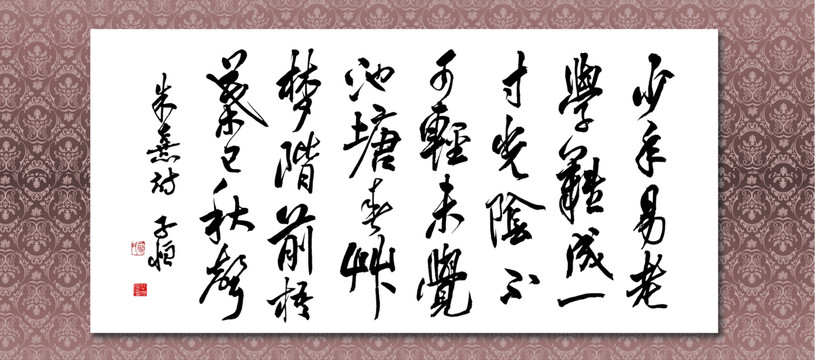 少年易老
學難成一
寸光陰不
可輕未覺
池塘春艸
梦階前梧
葉已秋聲
朱熹詩 子恒